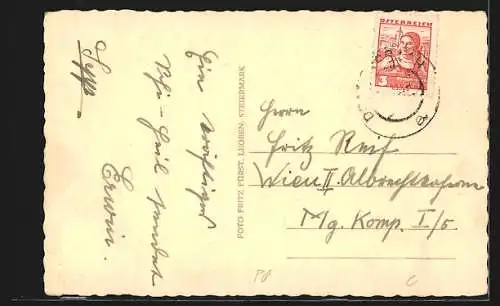 Ein kräftiges
Schi-Heil sendet
Erwin.
Sepp
FOTO FRITZ FÜRST, LEOBEN, STEIERMARK
ÖSTERREICH
3
Herrn
Fritz Reif
Wien II. Albrechtkaserne
Mg. Komp. I/5